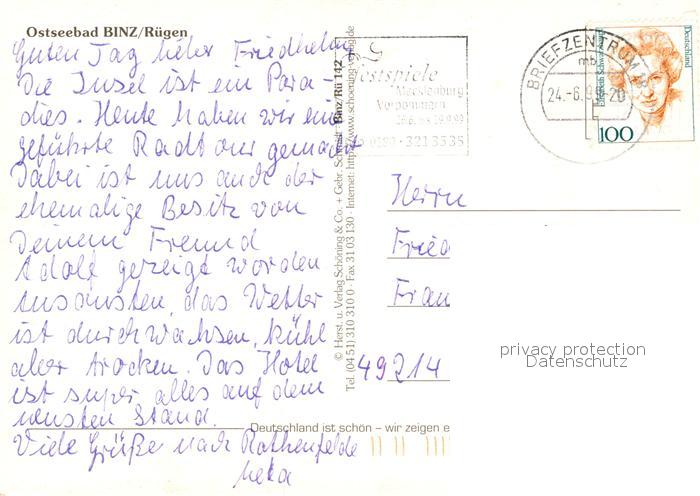 Ostseebad BINZ/Rügen
Guten Tag lieber Friedhelm,
Die Insel ist ein Para-
dies. Heute haben wir eine
geführte Radtour gemacht
Dabei ist uns auch der
ehemalige Besitz von
Deinem Freund
Adolf gezeigt worden
Ansonsten, das Wetter
ist durchwachsen, kühl
aber trocken. Das Hotel
ist super alles auf dem
neusten Stand.
Viele Grüße nach Rothenfelde
Meta
Deutschland ist schön – wir zeigen e
© Herst. u. Verlag Schöning & Co. + Gebr. Schmidt
Binz/Rü 142
Tel. (04 51) 310 310 0 · Fax 31 03 130 · Internet: http://www.schoening-verlag.de
Festspiele
Mecklenburg
Vorpommern
0180 - 3213535
BRIEFZENTRUM
mb
24.-6.99-20
Deutschland
100
Herrn
Fried
Fran
49214
privacy protection
Datenschutz